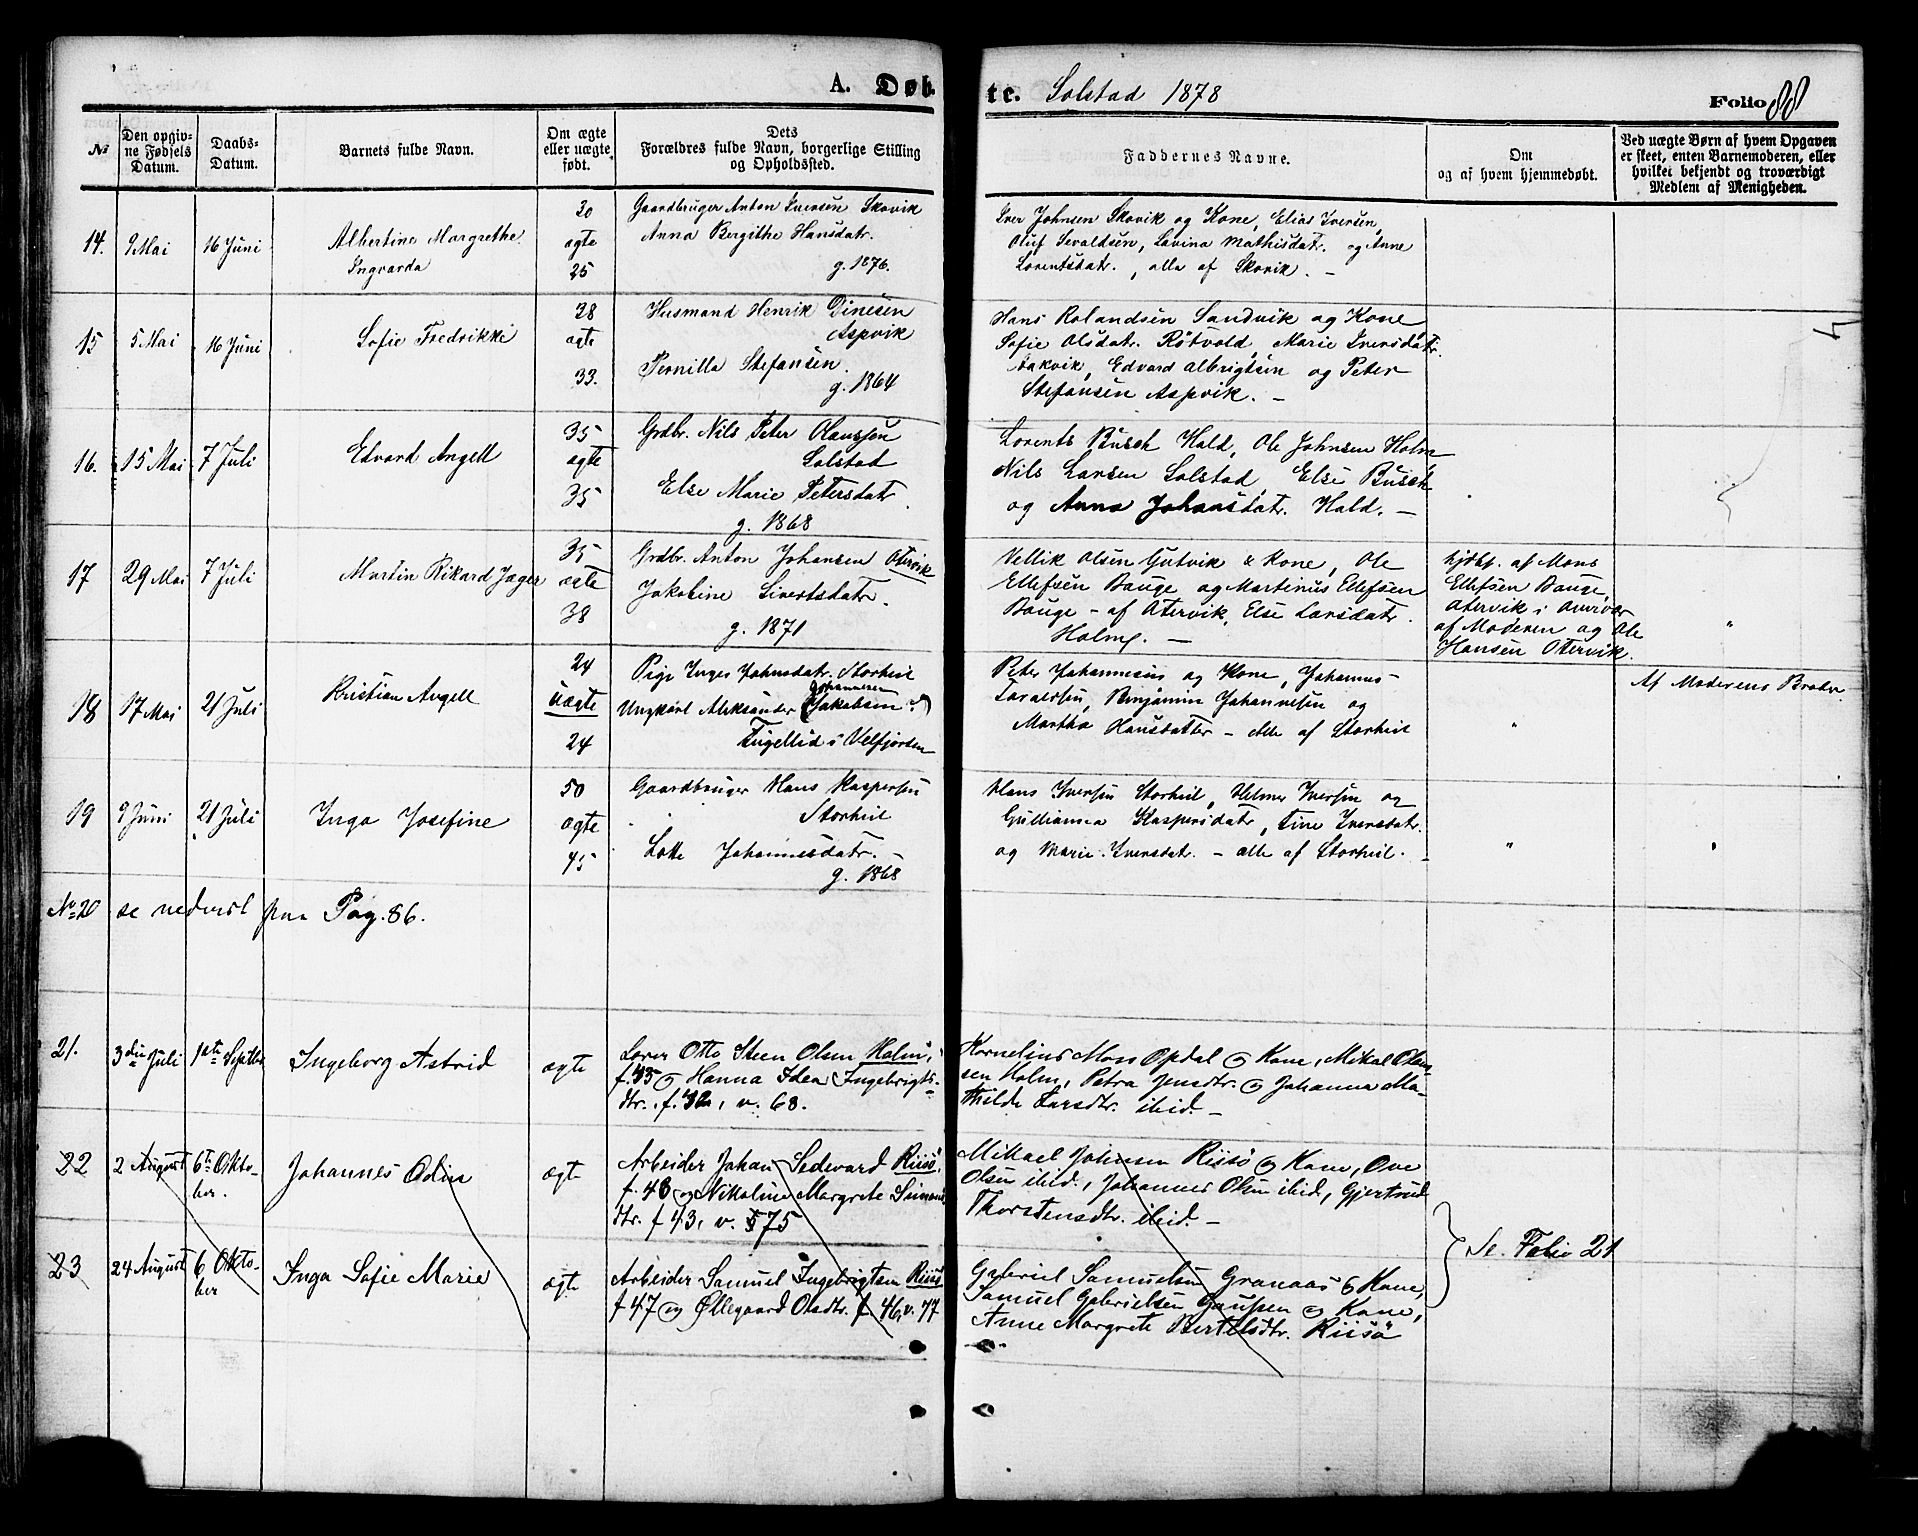 A. Døb-
te. Solstad 1878
Folio 88
№
Den opgiv-
ne Fødsels
Datum.
Daabs-
Datum.
Barnets fulde Navn.
Om ægte
eller uægte
født.
Dets
Forældres fulde Navn, borgerlige Stilling
og Opholdssted.
Faddernes Navne.
Om
og af hvem hjemmedøbt.
Ved uægte Børn af hvem Opgaven
er skeet, enten Barnemoderen, eller
hvilket bekjendt og troværdigt
Medlem af Menigheden.
14. 9 Mai 16 Juni
Albertine Margrethe
Ingvarda
30
ægte
25
Gaardbruger Anton Iversen Skovik
Anna Bergithe Hansdatr.
g. 1876.
Iver Johnsen Skovik og Kone, Elias Iversen,
Oluf Sevaldsen, Lovina Mathisdatr. og Anne
Lorentsdatr., alle af Skovik. –
15 5 Mai 16 Juni
Sofie Fredrikke
38
ægte
33.
Husmand Henrik Dinesen
Aspvik
Pernilla Stefansen.
g. 1864
Hans Rolandsen Sandvik og Kone
Sofie Olsdatr. Røtvold, Marie Iversdatr.
Edvard Albrigtsen og Peter
Stefansen Aspvik. –
16. 15 Mai 7 Juli
Edvard Angell
35
ægte
35
Grdbr. Nils Peter Olaussen
Solstad
Else Marie Petersdatr.
g. 1868
Lorents Busch Hald, Ole Johnsen Holm
Nils Larsen Solstad, Else Busch
og Anna Johansdatr. Hald. –
17 29 Mai 7 Juli
Martin Rikard Jæger
35
ægte
38
Grdbr. Anton Johansen Otervik
Jakobine Sivertsdatr.
g. 1871
Vellik Olsen Gutvik & Kone, Ole
Ellefsen Bauge og Martinus Ellefsen
Bauge – af Otervik, Else Larsdatr.
Holm. –
hjdbt. af Mons
Ellefsen Bauge,
Otervik i
af Moderen og Ole
Hansen Otervik.
"
18 17 Mai 21 Juli
Kristian Angell
24
Uægte
24
Pige Inger Johnsdatr. Storheil
Johannesen
Ungkarl Aleksander (Jakobsen?)
i Velfjorden
Peter Johannesen og Kone, Johannes
Benjamin Johannesen og
Martha Hansdatter – alle af Storheil
"
Af Moderens Broder
19 9 Juni 21 Juli
Inga Josefine
50
ægte
45
Gaardbruger Hans Kaspersen
Storheil
Lotte Johannesdatr. –
g. 1868
Hans Iversen Storheil, Helmer Iversen og
Gullianna Kaspersdatr, Tine Iversdatr.
og Marie Iversdatr. – alle af Storheil. –
"
"
No 20 se nederst paa Pag. 86.
21. 3die Juli 1ste Septbr
Ingeborg Astrid
ægte
Lærer Otto Steen Olsen Holm,
f. 35 og Hanna Idea Ingebrigts-
dtr. f. 42, v. 68.
Kornelius Moss Opdal og Kone, Mikal Olaus-
sen Holm, Petra Jensdtr. og Johanna Ma-
thilde Larsdtr. ibid. –
22 2 August 6te Okto-
ber.
Johannes Odin
ægte
Arbeider Johan Sedevard Riisö,
f. 48 og Nikoline Margrete Simons-
dtr. f 43, v. 75
Mikael Johnsen Riisö og Kone, Ove
Olsen ibid., Johannes Olsen ibid, Gjertrud
Thorstensdtr. ibid. –
23 24 August 6 Okto-
ber
Inga Sofie Marie
ægte
Arbeider Samuel Ingebrigtsen Riisö
f 47 og Øllegaard Olsdtr. f 46, v. 77
Gabriel Samuelsen Granaas og Kone,
Samuel Gabrielsen Gaupen og Kone,
Anne Margrete Bertelsdtr. Riisö
Se. Folio 21